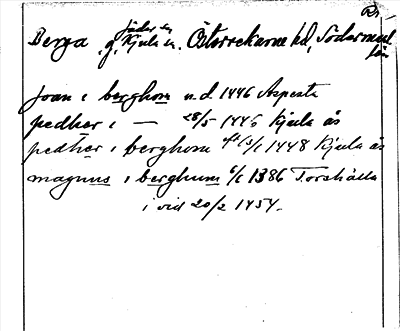 Jäder sn
Berga, g. Kjula sn. Österrekarne hd, Södermanl.
län
joan i berghom u.d. 1446 Aspesta
pedher i — 28/5 1446 Kjula ås
pedher i berghom 1448 Kjula ås
magnus i berghum 6/1 1386 Torshälla
i vid 20/2 1454.